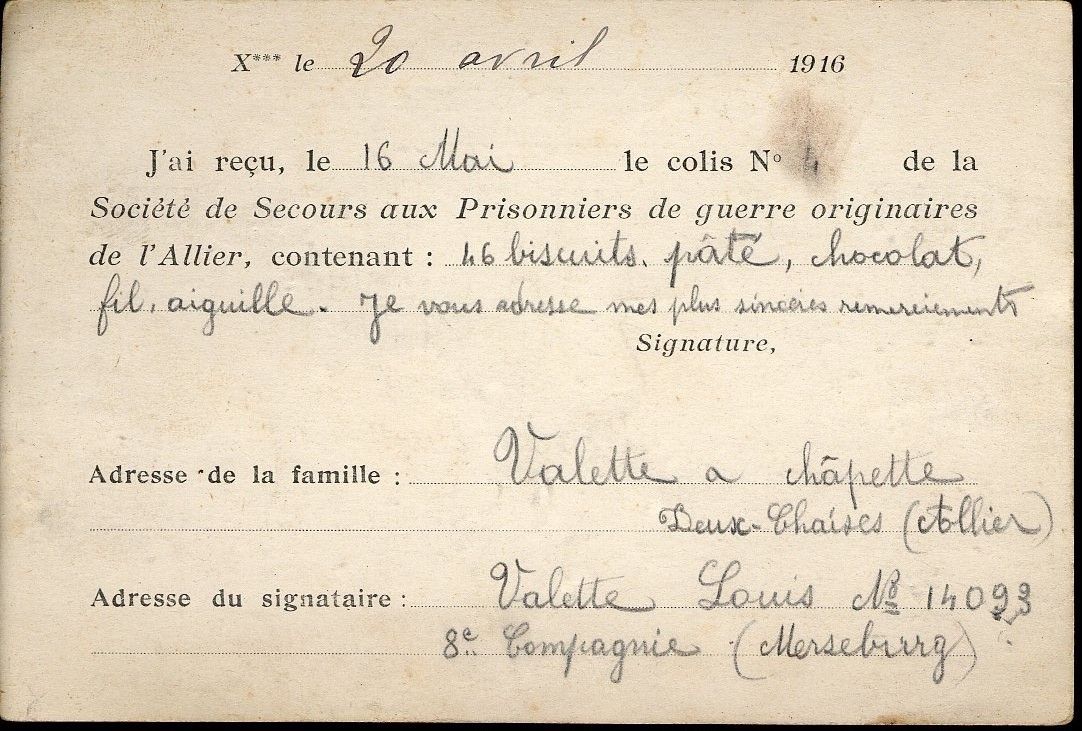 X*** le 20 avril 1916
J'ai reçu, le 16 Mai le colis N° 4 de la
Société de Secours aux Prisonniers de guerre originaires
de l'Allier, contenant : 46 biscuits. pâté, chocolat,
fil, aiguille. Je vous adresse mes plus sincères remerciements
Signature,
Adresse de la famille : Valette a châpette
Deux-Chaises (Allier)
Adresse du signataire : Valette Louis No 14093
8e Compagnie (Merseburg)